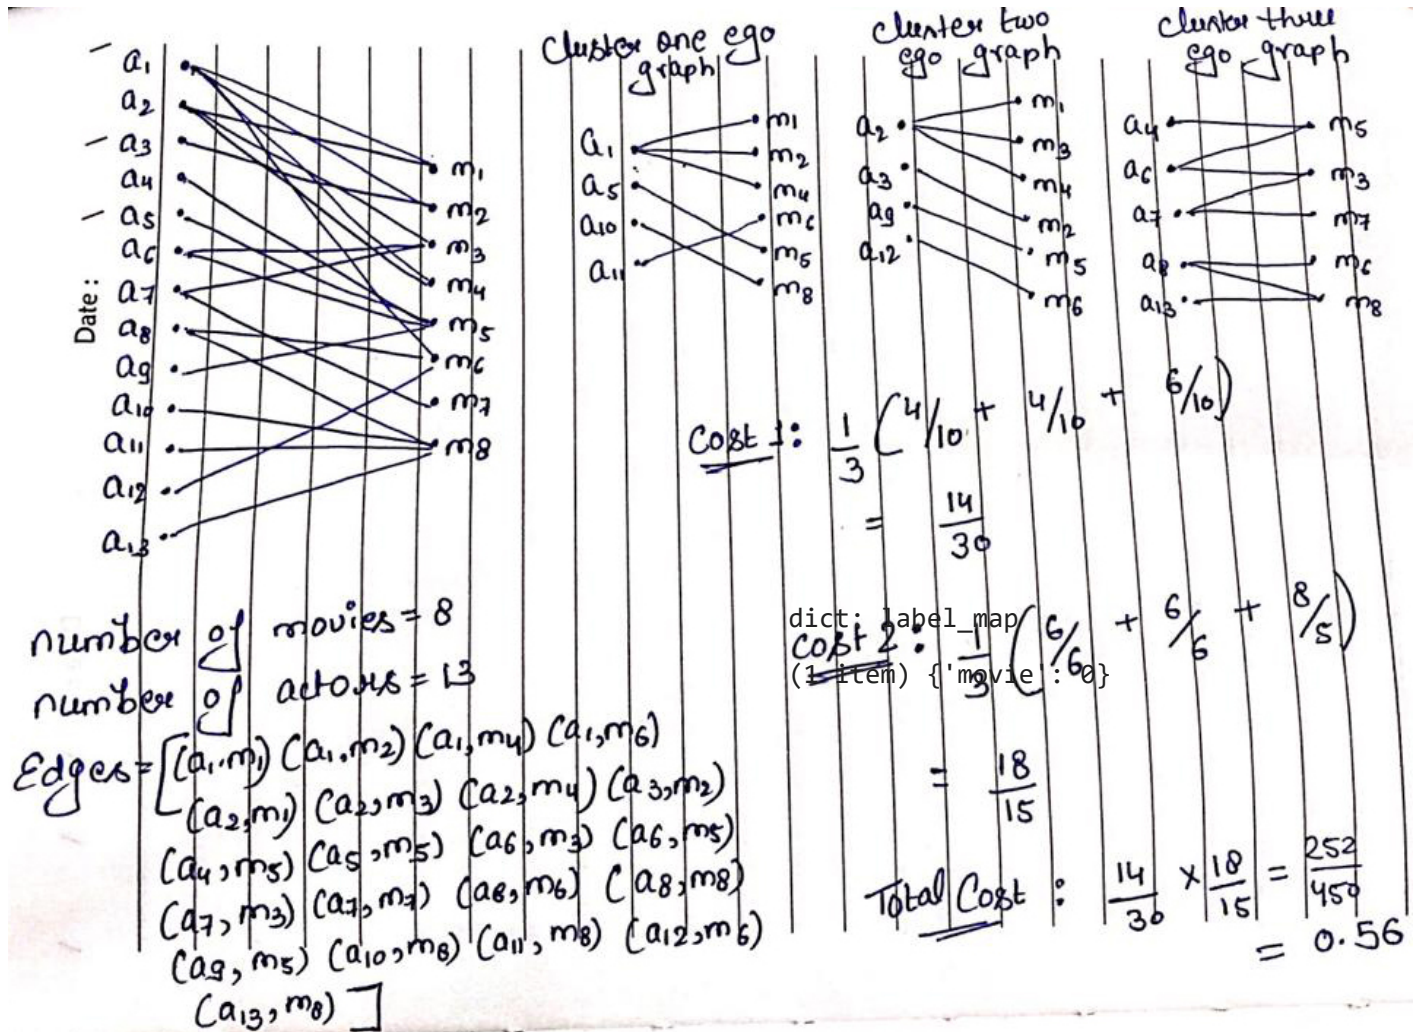 Date :
a1
a2
a3
a4
a5
a6
a7
a8
a9
a10
a11
a12
a13
m1
m2
m3
m4
m5
m6
m7
m8
cluster one ego
graph
a1
a5
a10
a11
m1
m2
m4
m6
m5
m8
cluster two
ego graph
a2
a3
a9
a12
m1
m3
m4
m2
m5
m6
cluster three
ego graph
a4
a6
a7
a8
a13
m5
m3
m7
m6
m8
Cost 1: 1/3 (4/10 + 4/10 + 6/10)
= 14/30
dict: label_map
cost 2: 1/3 (6/6 + 6/6 + 8/5)
(1 item) {'movie': 0}
= 18/15
Total Cost : 14/30 × 18/15 = 252/450
= 0.56
number of movies = 8
number of actors = 13
Edges = [(a1,m1) (a1,m2) (a1,m4) (a1,m6)
(a2,m1) (a2,m3) (a2,m4) (a3,m2)
(a4,m5) (a5,m5) (a6,m3) (a6,m5)
(a7,m3) (a7,m7) (a8,m6) (a8,m8)
(a9,m5) (a10,m8) (a11,m8) (a12,m6)
(a13,m8)]